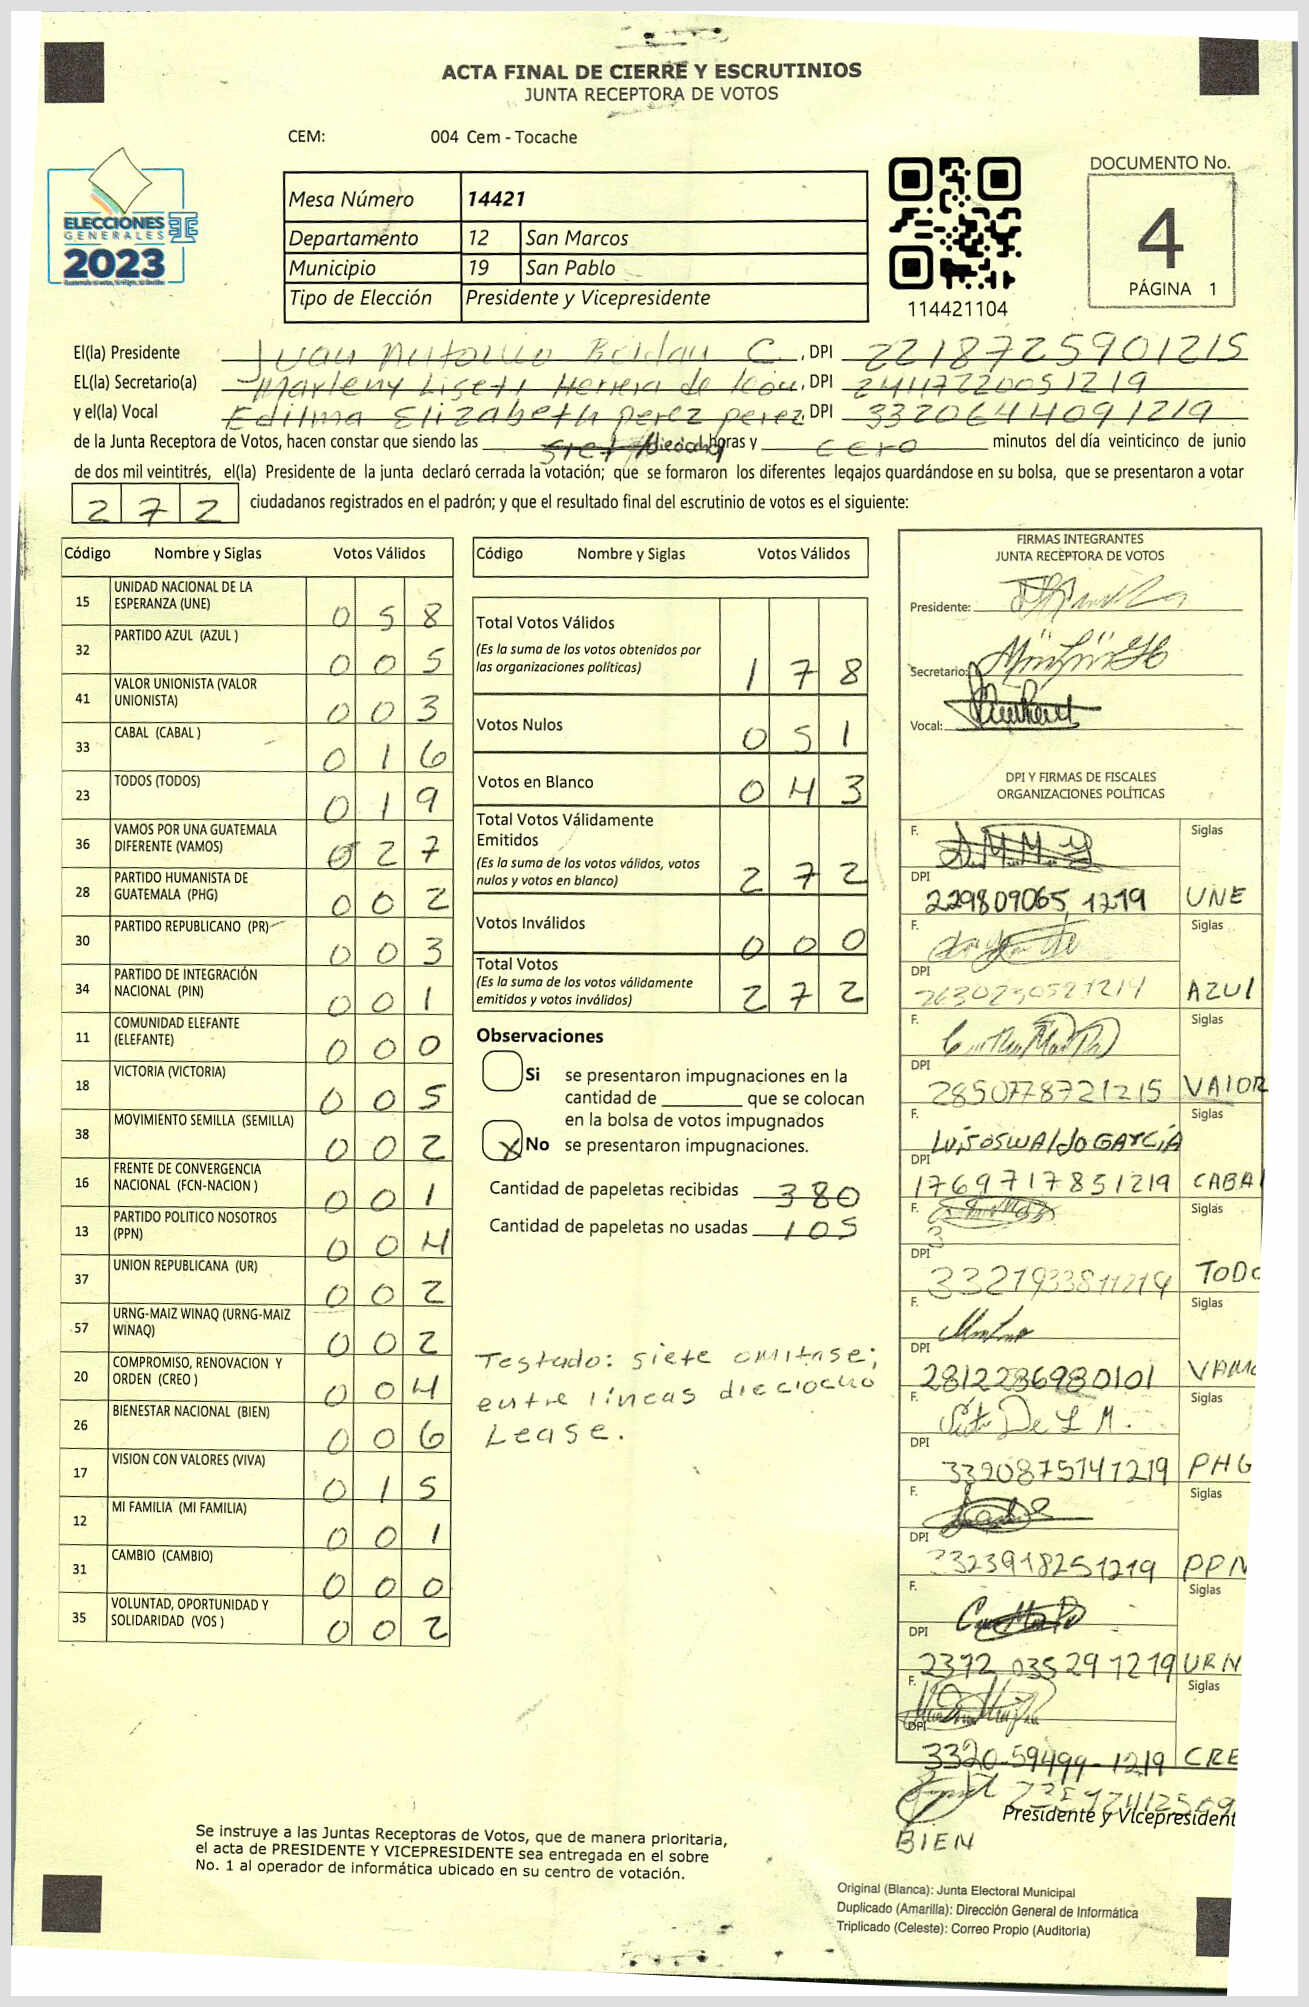 ACTA FINAL DE CIERRE Y ESCRUTINIOS
JUNTA RECEPTORA DE VOTOS
CEM: 004 Cem - Tocache
ELECCIONES
GENERALES
2023
Mesa Número 14421
Departamento 12 San Marcos
Municipio 19 San Pablo
Tipo de Elección Presidente y Vicepresidente
114421104
DOCUMENTO No.
4
PÁGINA 1
El(la) Presidente Juan Antonio Roldan C. , DPI 2218725901215
EL(la) Secretario(a) Marleny Liseth Herrera de león, DPI 2411722005 1219
y el(la) Vocal Edilma Elizabeth perez perez, DPI 3320644091219
de la Junta Receptora de Votos, hacen constar que siendo las siete dieciocho horas y cero minutos del día veinticinco de junio
de dos mil veintitrés, el(la) Presidente de la junta declaró cerrada la votación; que se formaron los diferentes legajos quardándose en su bolsa, que se presentaron a votar
272 ciudadanos registrados en el padrón; y que el resultado final del escrutinio de votos es el siguiente:
Código Nombre y Siglas Votos Válidos
15 UNIDAD NACIONAL DE LA ESPERANZA (UNE) 058
32 PARTIDO AZUL (AZUL ) 005
41 VALOR UNIONISTA (VALOR UNIONISTA) 003
33 CABAL (CABAL ) 016
23 TODOS (TODOS) 019
36 VAMOS POR UNA GUATEMALA DIFERENTE (VAMOS) 027
28 PARTIDO HUMANISTA DE GUATEMALA (PHG) 002
30 PARTIDO REPUBLICANO (PR) 003
34 PARTIDO DE INTEGRACIÓN NACIONAL (PIN) 001
11 COMUNIDAD ELEFANTE (ELEFANTE) 000
18 VICTORIA (VICTORIA) 005
38 MOVIMIENTO SEMILLA (SEMILLA) 002
16 FRENTE DE CONVERGENCIA NACIONAL (FCN-NACION ) 001
13 PARTIDO POLITICO NOSOTROS (PPN) 004
37 UNION REPUBLICANA (UR) 002
57 URNG-MAIZ WINAQ (URNG-MAIZ WINAQ) 002
20 COMPROMISO, RENOVACION Y ORDEN (CREO ) 004
26 BIENESTAR NACIONAL (BIEN) 006
17 VISION CON VALORES (VIVA) 015
12 MI FAMILIA (MI FAMILIA) 001
31 CAMBIO (CAMBIO) 000
35 VOLUNTAD, OPORTUNIDAD Y SOLIDARIDAD (VOS ) 002
Código Nombre y Siglas Votos Válidos
Total Votos Válidos 178
(Es la suma de los votos obtenidos por
las organizaciones políticas)
Votos Nulos 051
Votos en Blanco 043
Total Votos Válidamente
Emitidos 272
(Es la suma de los votos válidos, votos
nulos y votos en blanco)
Votos Inválidos 000
Total Votos 272
(Es la suma de los votos válidamente
emitidos y votos inválidos)
Observaciones
Si se presentaron impugnaciones en la
cantidad de ________ que se colocan
en la bolsa de votos impugnados
X No se presentaron impugnaciones.
Cantidad de papeletas recibidas 380
Cantidad de papeletas no usadas 105
Testado: siete omitase;
entre líneas dieciocho
Lease.
FIRMAS INTEGRANTES
JUNTA RECEPTORA DE VOTOS
Presidente:
Secretario:
Vocal:
DPI Y FIRMAS DE FISCALES
ORGANIZACIONES POLÍTICAS
F. Siglas
DPI 229809065 1219 UNE
F. Siglas
DPI AZUl
F. Siglas
DPI 2850778721215 VAlOR
F. LUiS OSWAldo GARCÍA Siglas
DPI 1769717851219 CABAl
F. Siglas
DPI TODO
F. Siglas
DPI 2812286980101 VAMO
F. Siglas
DPI 3320875141219 PHG
F. Siglas
DPI 3323918251219 PPN
F. Siglas
DPI 2372 035291219 URN
F. Siglas
DPI 3320-59499-1219 CRE
BIEN
Presidente y Vicepresident
Se instruye a las Juntas Receptoras de Votos, que de manera prioritaria,
el acta de PRESIDENTE Y VICEPRESIDENTE sea entregada en el sobre
No. 1 al operador de informática ubicado en su centro de votación.
Original (Blanca): Junta Electoral Municipal
Duplicado (Amarilla): Dirección General de Informática
Triplicado (Celeste): Correo Propio (Auditoría)